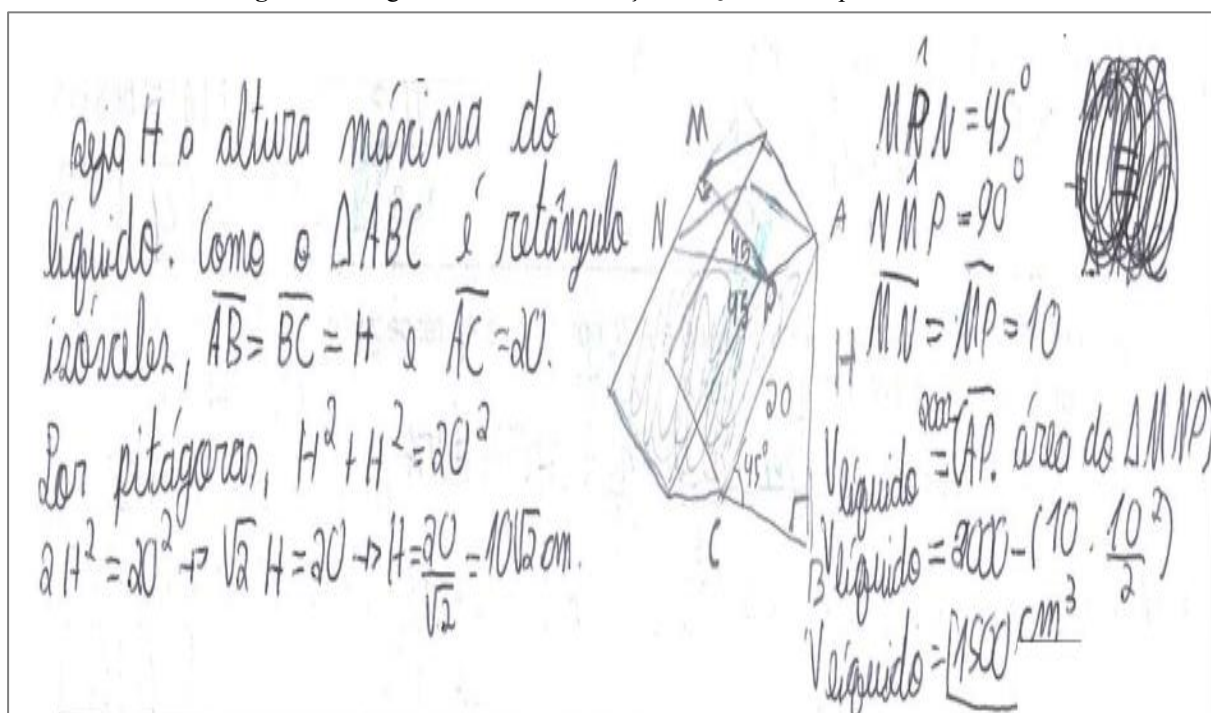 Seja H a altura máxima do
líquido. Como o ΔABC é retângulo
isósceles, A͞B = B͞C = H e A͞C = 20.
Por pitágoras, H² + H² = 20²
2H² = 20² → √2 H = 20 → H = 20/√2 = 10√2 cm.
M
N
A
45
45
P
H
20
45°
C
B
MP̂N = 45°
NM̂P = 90°
M͞N = M͞P = 10
V líquido = 2000 - (A͞P. área do ΔMNP)
V líquido = 2000 - (10 . 10²/2)
V líquido = 1500 cm³